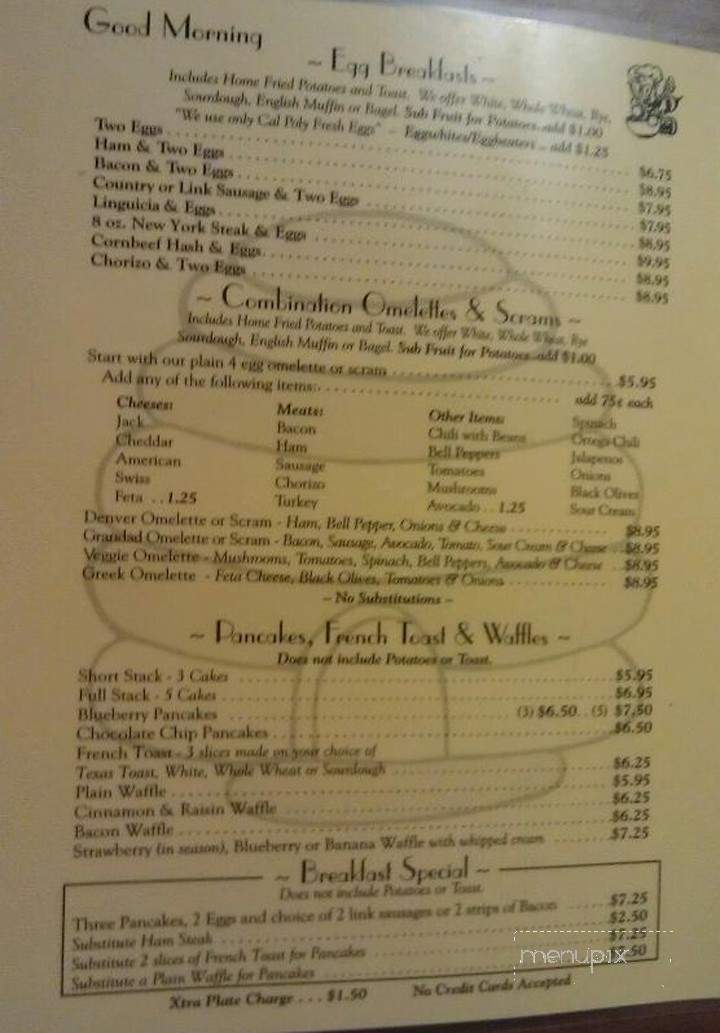 Good Morning
~ Egg Breakfasts ~
Includes Home Fried Potatoes and Toast. We offer White, Whole Wheat, Rye,
Sourdough, English Muffin or Bagel. Sub Fruit for Potatoes..add $1.00
"We use only Cal Poly Fresh Eggs" - Eggwhites/Eggbeaters .. add $1.25
Two Eggs $6.75
Ham & Two Eggs $8.95
Bacon & Two Eggs $7.95
Country or Link Sausage & Two Eggs $7.95
Linguicia & Eggs $8.95
8 oz. New York Steak & Eggs $9.95
Cornbeef Hash & Eggs $8.95
Chorizo & Two Eggs $8.95
~ Combination Omelettes & Scrams ~
Includes Home Fried Potatoes and Toast. We offer White, Whole Wheat, Rye
Sourdough, English Muffin or Bagel. Sub Fruit for Potatoes..add $1.00
Start with our plain 4 egg omelette or scram $5.95
Add any of the following items: add 75¢ each
Cheeses: Meats: Other Items: Spinach
Jack Bacon Chili with Beans Ortega Chili
Cheddar Ham Bell Peppers Jalapenos
American Sausage Tomatoes Onions
Swiss Chorizo Mushrooms Black Olives
Feta . . 1.25 Turkey Avocado . . 1.25 Sour Cream
Denver Omelette or Scram - Ham, Bell Pepper, Onions & Cheese $8.95
Grandad Omelette or Scram - Bacon, Sausage, Avocado, Tomato, Sour Cream & Cheese $8.95
Veggie Omelette - Mushrooms, Tomatoes, Spinach, Bell Peppers, Avocado & Cheese $8.95
Greek Omelette - Feta Cheese, Black Olives, Tomatoes & Onions $8.95
~ No Substitutions ~
~ Pancakes, French Toast & Waffles ~
Does not include Potatoes or Toast.
Short Stack - 3 Cakes $5.95
Full Stack - 5 Cakes $6.95
Blueberry Pancakes (3) $6.50 . . (5) $7.50
Chocolate Chip Pancakes $6.50
French Toast - 3 slices made on your choice of
Texas Toast, White, Whole Wheat or Sourdough $6.25
Plain Waffle $5.95
Cinnamon & Raisin Waffle $6.25
Bacon Waffle $6.25
Strawberry (in season), Blueberry or Banana Waffle with whipped cream $7.25
~ Breakfast Special ~
Does not include Potatoes or Toast.
Three Pancakes, 2 Eggs and choice of 2 link sausages or 2 strips of Bacon $7.25
Substitute Ham Steak $2.50
Substitute 2 slices of French Toast for Pancakes $7.25
Substitute a Plain Waffle for Pancakes
menupix
Xtra Plate Charge . . . $1.50 No Credit Cards Accepted